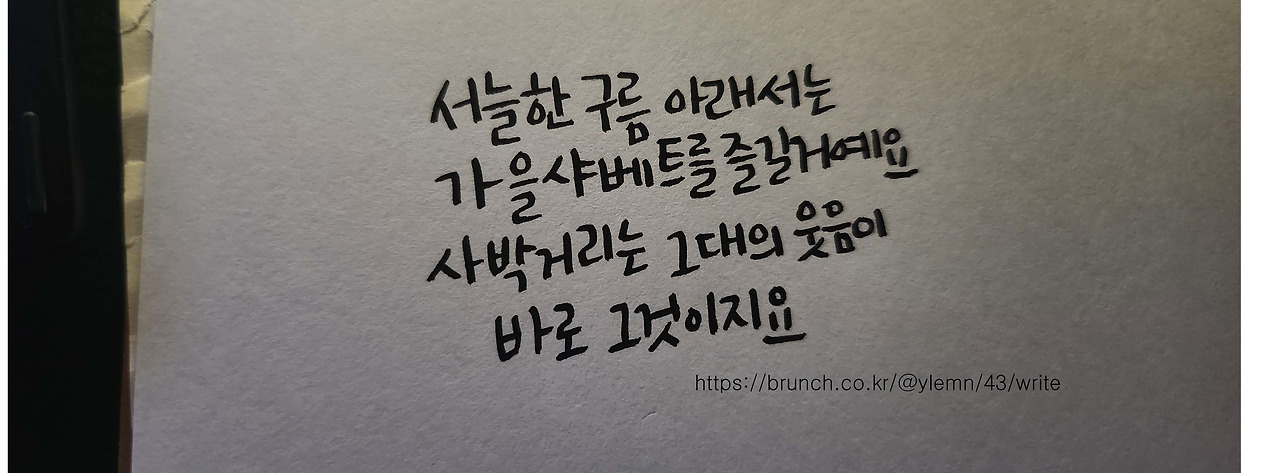 서늘한 구름 아래서는
가을샤베트를 즐길거예요
사박거리는 그대의 웃음이
바로 그것이지요
https://brunch.co.kr/@ylemn/43/write